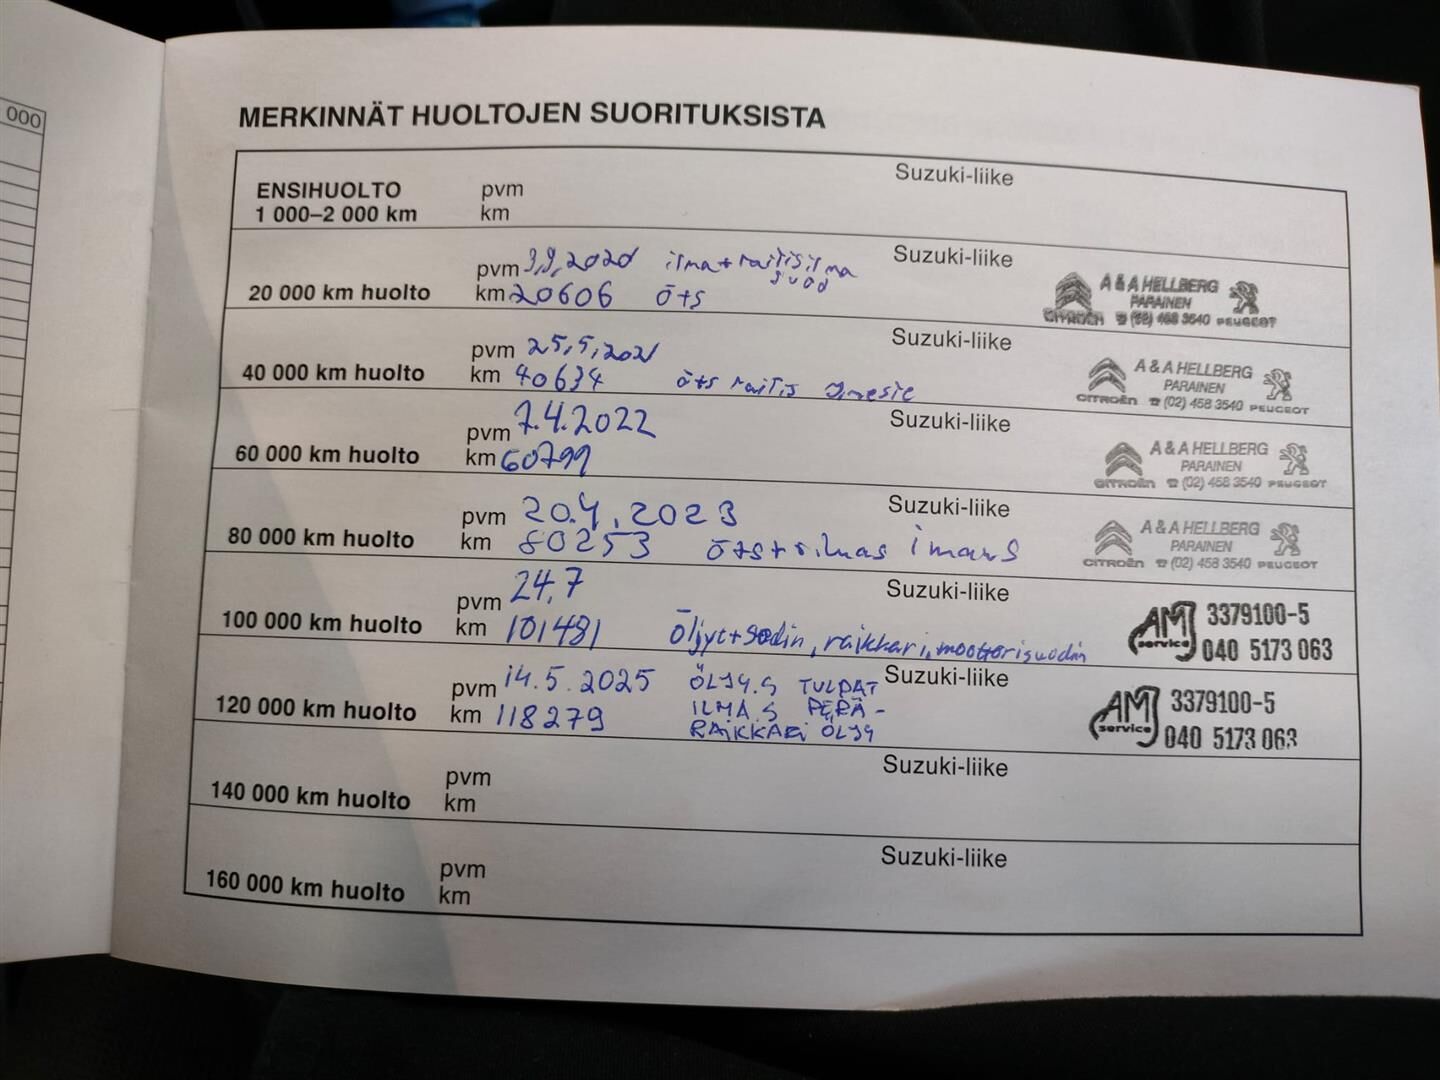 000
MERKINNÄT HUOLTOJEN SUORITUKSISTA
ENSIHUOLTO
1 000–2 000 km
pvm
km
Suzuki-liike
20 000 km huolto
pvm 3.9.2020 ilma + raitisilma
suod
km 20606 öts
Suzuki-liike
A & A HELLBERG
PARAINEN
CITROËN ☎ (02) 458 3540 PEUGEOT
40 000 km huolto
pvm 25.5.2021
km 40634 öts raitis
Suzuki-liike
A & A HELLBERG
PARAINEN
CITROËN ☎ (02) 458 3540 PEUGEOT
60 000 km huolto
pvm 7.4.2022
km 60799
Suzuki-liike
A & A HELLBERG
PARAINEN
CITROËN ☎ (02) 458 3540 PEUGEOT
80 000 km huolto
pvm 20.4.2023
km 80253
Suzuki-liike
A & A HELLBERG
PARAINEN
CITROËN ☎ (02) 458 3540 PEUGEOT
100 000 km huolto
pvm 24.7
km 101481 öljyt + sodin, raikkari, moottorisuodin
Suzuki-liike
AM service
3379100-5
040 5173 063
120 000 km huolto
pvm 14.5.2025 ÖLJY.S TULPAT
km 118279 ILMA.S PERÄ-
RAIKKARI ÖLJY
Suzuki-liike
AM service
3379100-5
040 5173 063
140 000 km huolto
pvm
km
Suzuki-liike
160 000 km huolto
pvm
km
Suzuki-liike